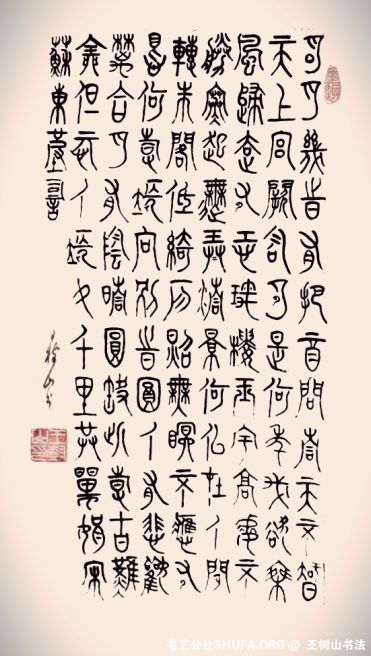 明月幾時有把酒問青天不知
天上宮闕今夕是何年我欲乘
風歸去又恐瓊樓玉宇高處不
勝寒起舞弄清影何似在人間
轉朱閣低綺戶照無眠不應有
恨何事長向別時圓人有悲歡
離合月有陰晴圓缺此事古難
全但願人長久千里共嬋娟宋
蘇東坡詞
樹山書
书艺公社SHUFA.ORG @ 王树山书法